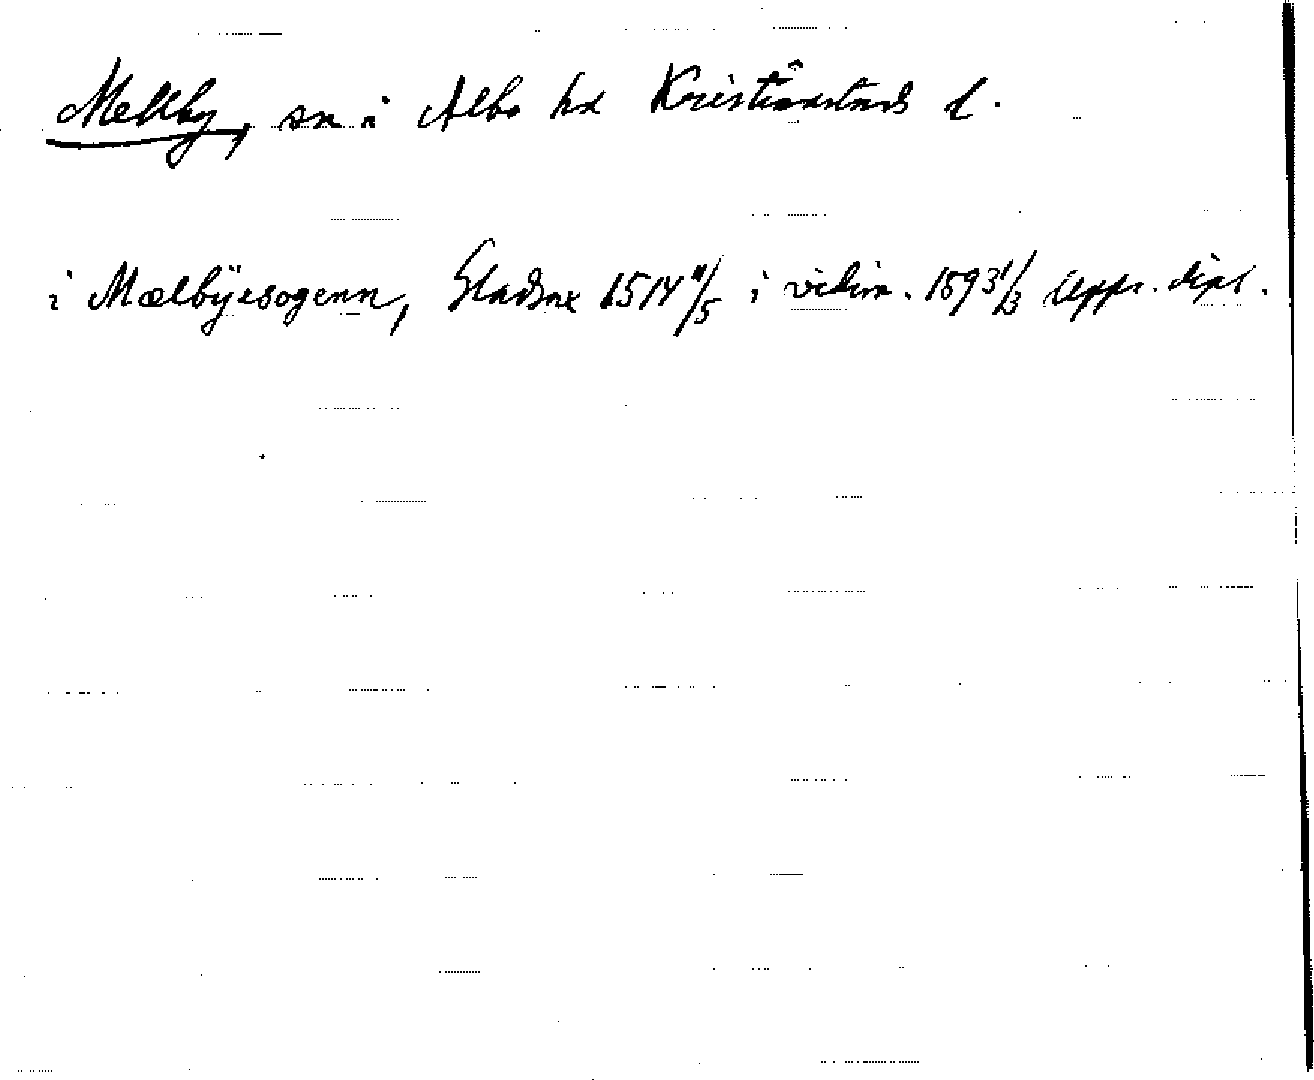 Mellby, sn i Albo hd Kristianstads l.
i Mælbÿesogenn, Gladsax 1514 11/5 i vidim. 1593 1/3 Uppr. dipl.